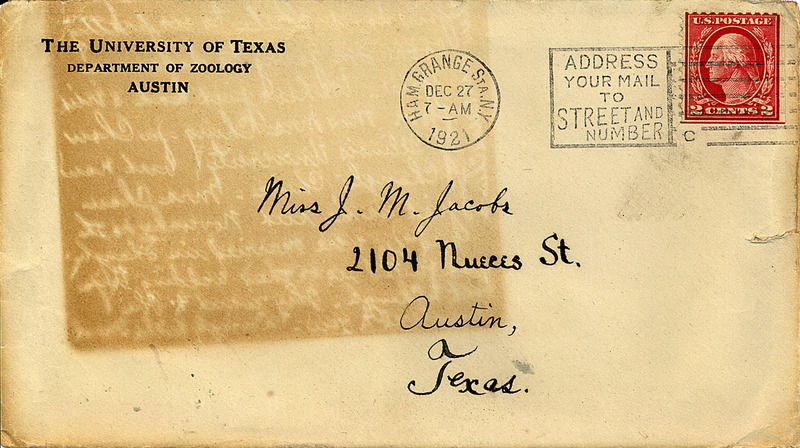 THE UNIVERSITY OF TEXAS
DEPARTMENT OF ZOOLOGY
AUSTIN
HAM. GRANGE STA. N.Y.
DEC 27
7-AM
1921
ADDRESS
YOUR MAIL
TO
STREET AND
NUMBER
C
U.S. POSTAGE
2 CENTS 2
Miss J. M. Jacobs
2104 Nueces St.
Austin,
Texas.